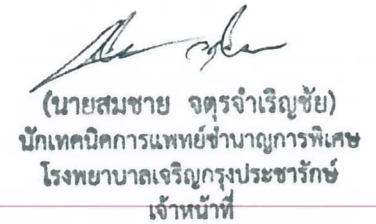 (นายสมชาย จตุรจำเริญชัย)
นักเทคนิคการแพทย์ชำนาญการพิเศษ
โรงพยาบาลเจริญกรุงประชารักษ์
เจ้าหน้าที่